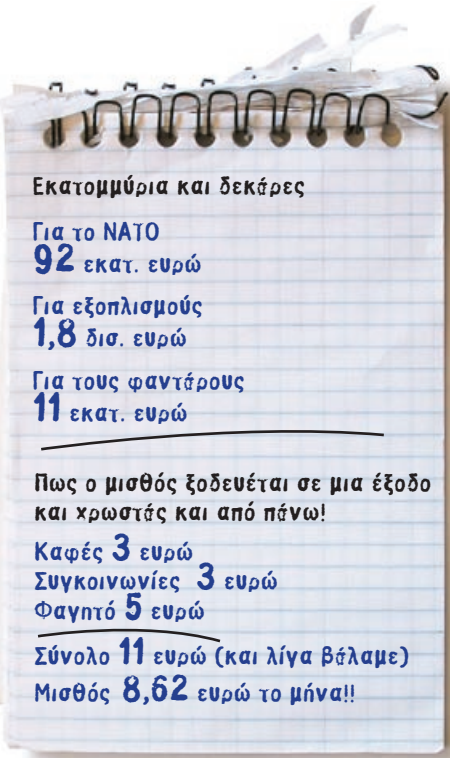 Εκατομμύρια και δεκάρες
Για το ΝΑΤΟ
92 εκατ. ευρώ
Για εξοπλισμούς
1,8 δισ. ευρώ
Για τους φαντάρους
11 εκατ. ευρώ
Πως ο μισθός ξοδευέται σε μια έξοδο
και χρωστάς και από πάνω!
Καφές 3 ευρώ
Συγκοινωνίες 3 ευρώ
Φαγητό 5 ευρώ
Σύνολο 11 ευρώ (και λίγα βάλαμε)
Μισθός 8,62 ευρώ το μήνα!!